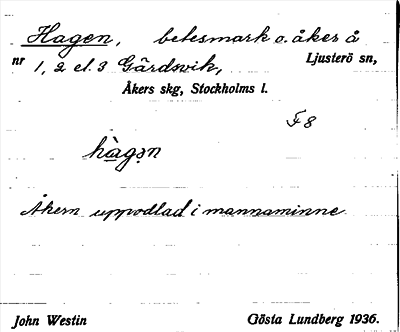 Hagen, betesmark o. åker å
nr 1, 2 el. 3 Gärdsvik, Ljusterö sn,
Åkers skg, Stockholms l.
F 8
hàgən
Åkern uppodlad i mannaminne
John Westin Gösta Lundberg 1936.